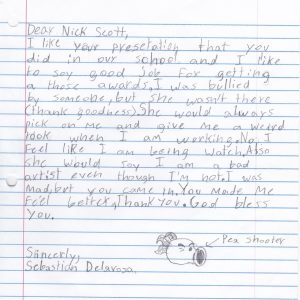 Dear Nick Scott,
I like your presetation that you
did in our school and I like
to say good job for getting
a those awards, I was bullied
by someone, but she wasn't there
(thank goodness). She would always
pick on me and give me a weird
look when I am working. No, I
feel like I am being watch. Also
she would say I am a bad
artist even though I'm not. I was
mad, but you came in. You made me
feel better, Thank you. God bless
you.
Pea shooter
Sincerly,
Sebastian Delarosa.